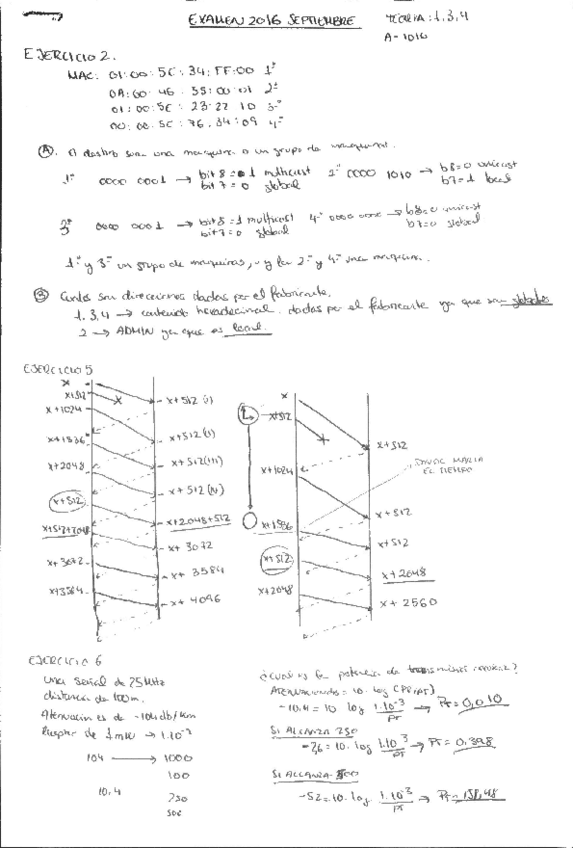 EXAMEN 2016 SEPTIEMBRE
TEORIA: 1,3,4
A-1016
EJERCICIO 2.
MAC: 01:00:5C:34:FF:00 1ª
0A:00:46:55:00:01 2ª
01:00:5C:23:22:10 3ª
00:00:5C:76:34:09 4ª
A. El destino sea una maquina o un grupo de maquinas.
1ª 0000 0001 → bit 8 = 1 multicast
bit 7 = 0 global
2ª 0000 1010 → b8=0 unicast
b7=1 local
3ª 0000 0001 → bit 8 = 1 multicast
bit 7 = 0 global
4ª 0000 0000 → b8=0 unicast
b7=0 global
1ª y 3ª un grupo de maquinas, y la 2ª y 4ª una maquina.
B son direcciones dadas por el fabricante.
1, 3, 4 → contenido hexadecimal. dadas por el fabricante ya que son globales
2 → ADMIN ya que es local.
EJERCICIO 5
x
x+512
x+1024
x+1536
x+2048
x+512
x+512+2048
x+3072
x+3584
x+512
x+512
x+512
x+512
x+2048+512
x+3072
x+3584
x+4096
x
x+512
x+1024
x+1536
x+512
x+2048
x+512
x+512
x+512
x+2048
x+2560
EL TIEMPO
EJERCICIO 6
una señal de 25 MHz
distancia de 100m.
Atenuacion es de -104db/km
de 1mW → 1.10⁻³
104 → 1000
100
10,4
250
500
¿cual es la potencia de ?
10. log (PR/PT)
-10.4 = 10. log 1.10⁻³/PT → PT = 0,010
SI ALCANZA 250
-26 = 10. log 1.10⁻³/PT → PT = 0,398
SI ALCANZA 500
-52 = 10. log 1.10⁻³/PT → PT = 158,48